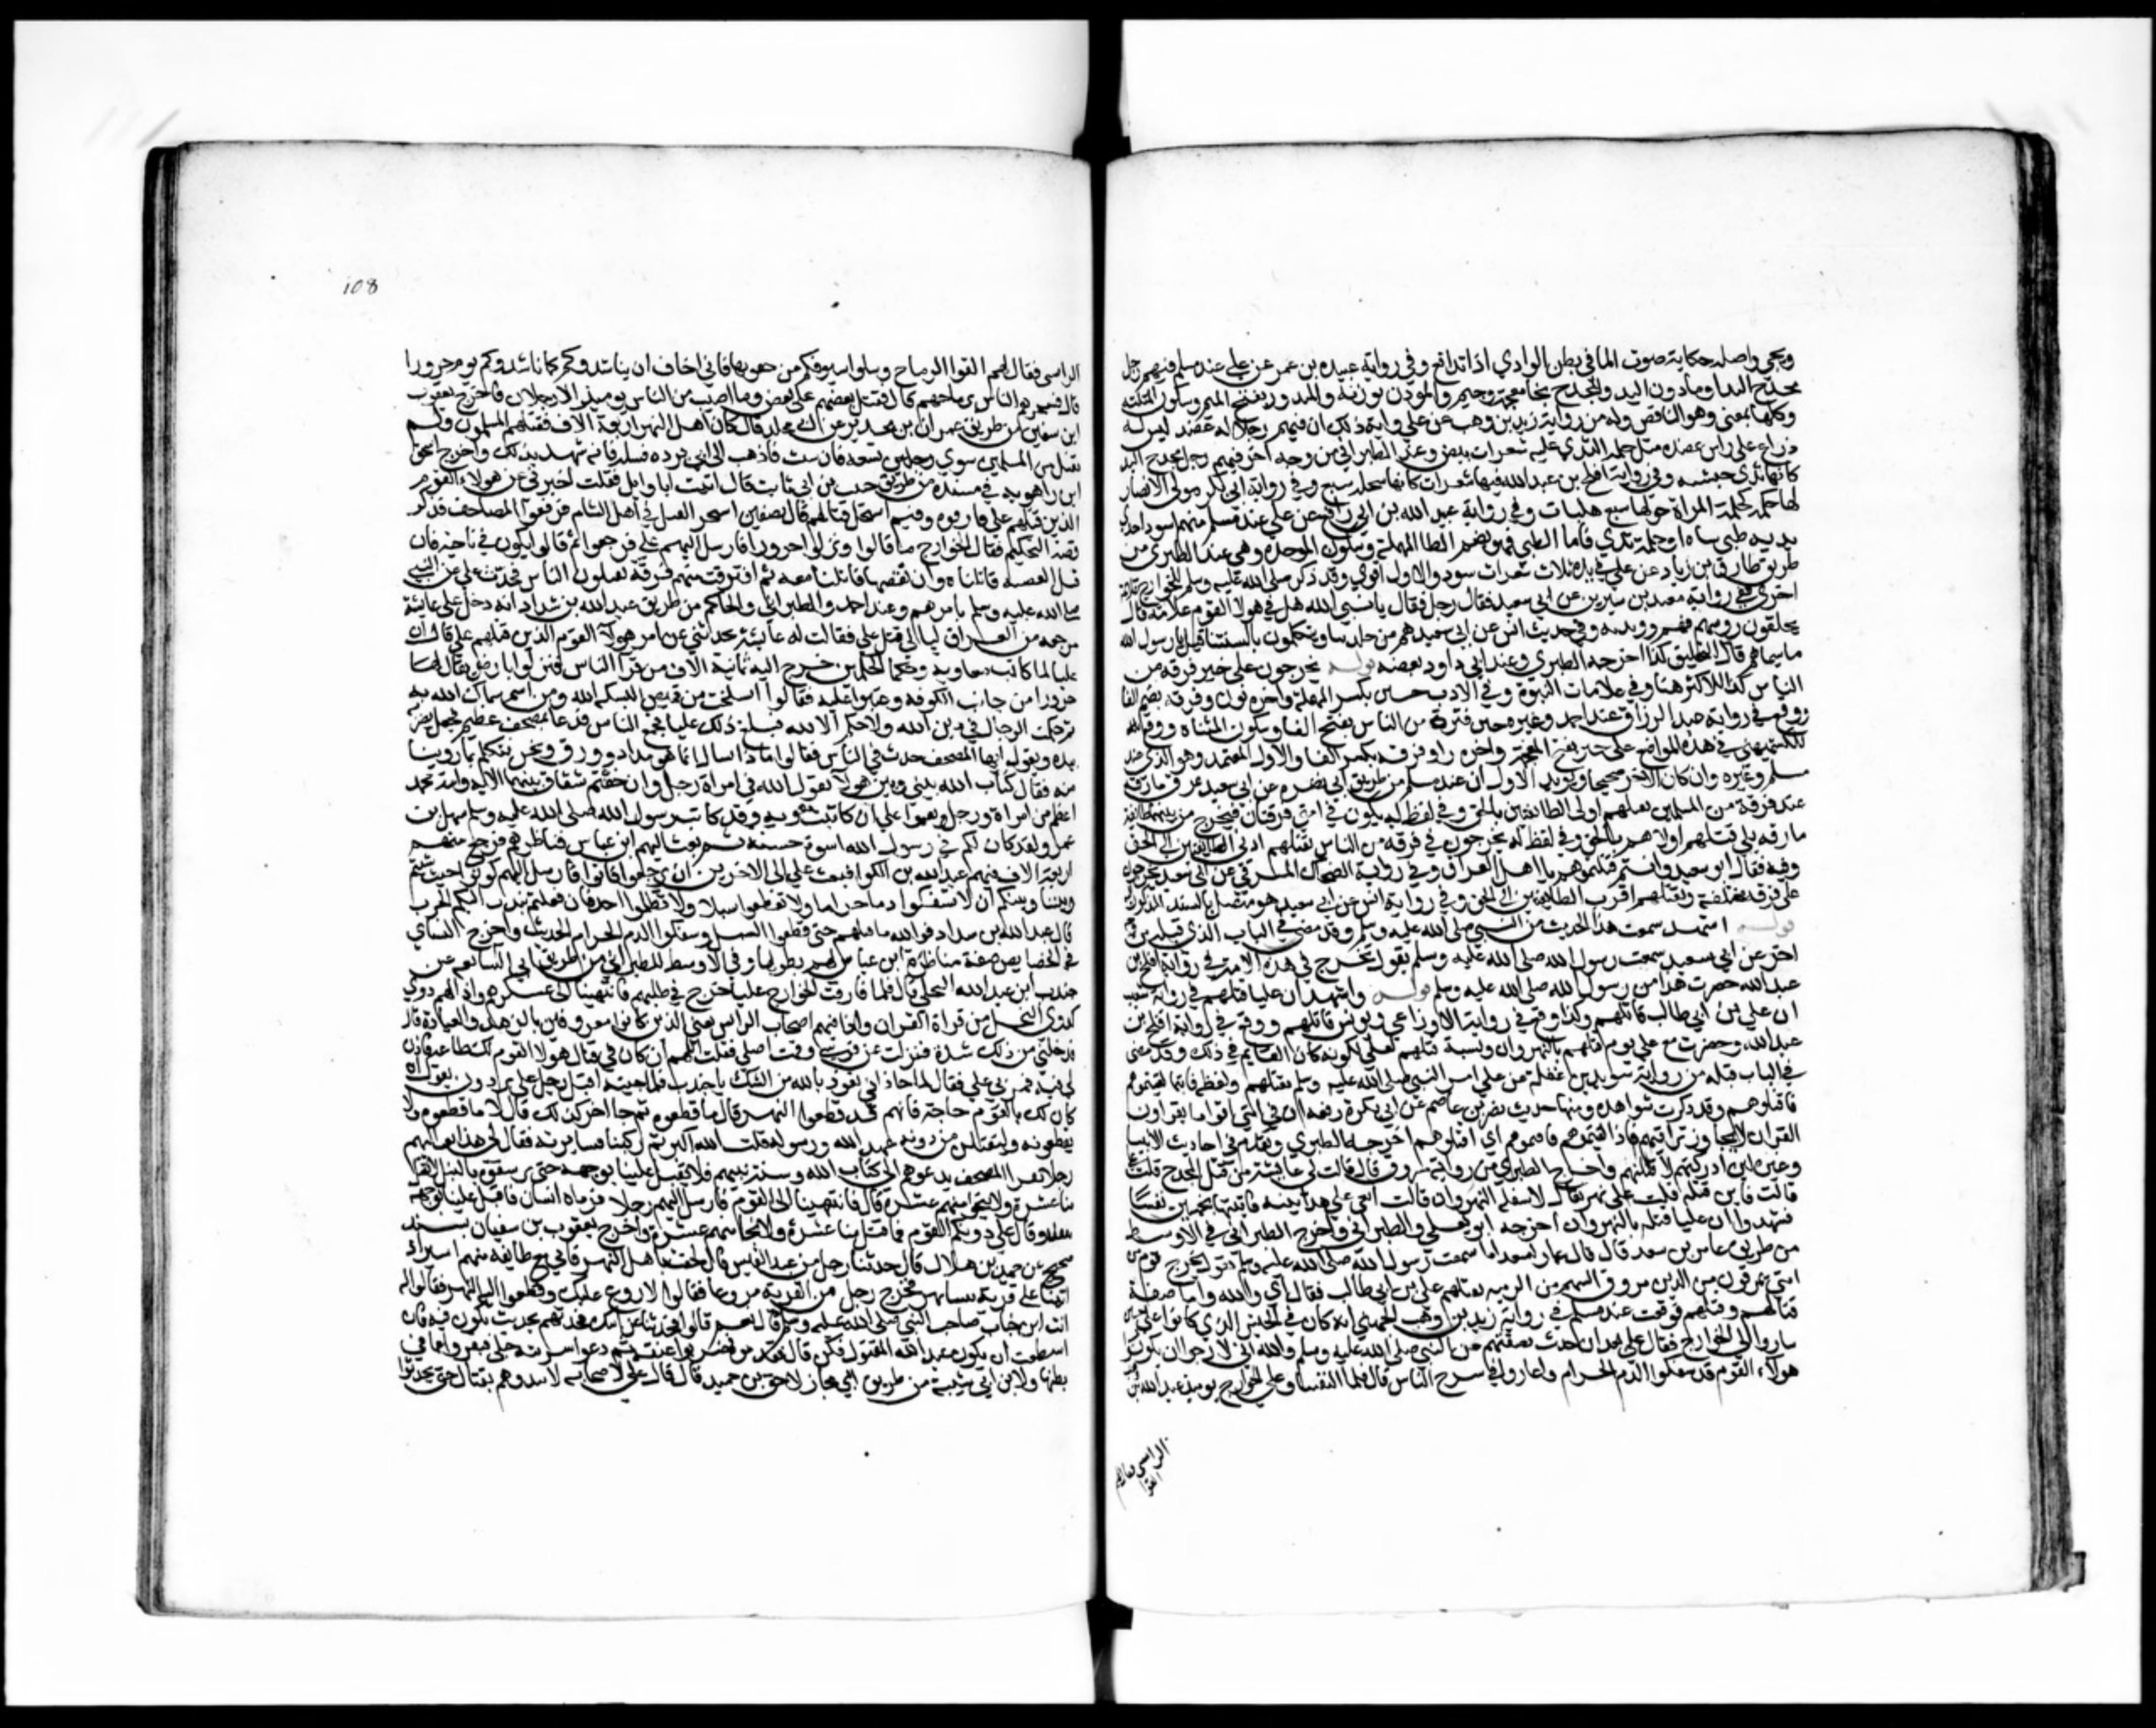 ويجي واصله حكاية صوت الما في بطن الوادي اذا تدافع وفي رواية عبيده بن عمر عن علي عند مسلم فيهم رجل
مخدج اليد او مادون اليد والمخدج بخا معجمة وجيم والمودن بوزنه والمثدون بفتح الميم وسكون المثلثه
وكلها بمعنى وهو الناقص وله من رواية زيد بن وهب عن علي واية ذلك ان فيهم رجلا له عضد ليس له
ذراع على راس عضده مثل حلمة الثدي عليه شعرات بيض وعند الطبراني من وجه اخر فيهم رجل مخدج اليد
كانها ثدي حبشيه وفي رواية افلح بن عبد الله فيها شعرات كانها سخلة سبع وفي رواية ابي بكر مولى الانصار
لها حلمة كحلمة المراة حولها سبع هلبات وفي رواية عبد الله بن ابي رافع عن علي عند مسلم منهم اسود احدى
يديه طبي شاه او حلمة ثدي فاما الطبي فهو بضم الطا المهملة وسكون الموحده وهي عند الطبري من
طريق طارق بن زياد عن علي في يده ثلاث شعرات سود والاول اقوي وقد ذكر صلى الله عليه وسلم للخوارج علامة
اخرى ففي رواية معبد بن سيرين عن ابي سعيد فقال رجل فقال يا نبي الله هل في هولا القوم علامة قال
يحلقون روسهم فيهم ذو يديه وفي حديث انس عن ابي سعيد هم من جلدتنا ويتكلمون بالسنتنا قيل يا رسول الله
ما سيماهم قال التحليق كذا اخرجه الطبري وعند ابي داود بعضه قوله يخرجون على خير فرقة من
الناس كذا للاكثر هنا وفي علامات النبوة وفي الادب حين بكسر المهملة واخره نون وفرقه بضم الفا
ووقع في رواية عبد الرزاق عند احمد وغيره حين فترة من الناس بفتح الفا وسكون المثناه ووقع
للكشميهني في هذه المواضع على خير بفتح المعجمة واخره را وفرقة بكسر الفا والاول المعتمد وهو الذي عند
مسلم وغيره وان كان الاخر صحيحا ويويد الاول ان عند مسلم من طريق ابي نضره عن ابي سعيد تمرق مارقة
عند فرقة من المسلمين يقتلهم اولى الطائفتين بالحق وفي لفظ له يكون في امتي فرقتان فيخرج من بينهما طائفة
مارقه يلي قتلهم اولاهم بالحق وفي لفظ له يخرجون في فرقة من الناس يقتلهم ادنى الطائفتين الى الحق
وفيه فقال ابو سعيد وانتم قتلتموهم يا اهل العراق وفي رواية الضحاك المشرقي عن ابي سعيد يخرجون
على فرقة مختلفة يقتلهم اقرب الطائفتين الى الحق وفي رواية انس عن ابي سعيد هو متصل بالسند المذكور
قوله اشهد سمعت هذا الحديث من النبي صلى الله عليه وسلم وقد مضى في الباب الذي قبله من وجه
اخر عن ابي سعيد سمعت رسول الله صلى الله عليه وسلم يقول يخرج في هذه الامة وفي رواية افلح بن
عبد الله حضرت هذا من رسول الله صلى الله عليه وسلم قوله واشهد ان عليا قتلهم في رواية شعيب
ان علي بن ابي طالب قاتلهم وكذا وقع في رواية الاوزاعي ويونس قاتلهم ووقع في رواية افلح بن
عبد الله وحضرت مع علي يوم قتلهم بالنهروان ونسبة قتلهم لعلي لكونه كان القايم في ذلك وقد مضى
في الباب قبله من رواية سويد بن غفلة عن علي امر النبي صلى الله عليه وسلم بقتلهم ولفظه فاينما لقيتموهم
فاقتلوهم وقد ذكرت شواهده ومنها حديث نصر بن عاصم عن ابي بكرة رفعه ان في امتي اقواما يقراون
القران لا يجاوز تراقيهم فاذا لقيتموهم فانيموهم اي اقتلوهم اخرجه الطبري وتقدم في احاديث الانبيا
وغيره لئن ادركتهم لاقتلنهم واخرج الطبري من رواية مسروق قال قالت لي عايشة من قتل المخدج قلت علي
قالت فاين قتله قلت على نهر يقال لاسفله النهروان قالت ائتني على هذا ببينة فاتيتها بخمسين نفسا
فشهدوا ان عليا قتله بالنهروان اخرجه ابو يعلى والطبراني واخرج الطبراني في الاوسط
من طريق عامر بن سعد قال قال عمار لسعد اما سمعت رسول الله صلى الله عليه وسلم يقول يخرج قوم من
امتي يمرقون من الدين مروق السهم من الرميه يقتلهم علي بن ابي طالب فقال اي والله واما صفة
قتالهم وقتلهم فوقعت عند مسلم في رواية زيد بن وهب الجهني انه كان في الجيش الذي كانوا مع علي حين
ساروا الى الخوارج فقال علي بعد ان حدث بصفتهم عن النبي صلى الله عليه وسلم والله اني لارجو ان يكونوا
هولاء القوم قد سفكوا الدم الحرام واغاروا في سرح الناس قال فلما التقينا وعلى الخوارج يوميذ عبد الله بن
الراسي فقال لهم
القوا
108
الراسي فقال لهم القوا الرماح وسلوا سيوفكم من حقونها فاني اخاف ان يناشدوكم كما ناشدوكم يوم حرورا
قال فشجرهم الناس برماحهم قال فقتل بعضهم على بعض وما اصيب من الناس يوميذ الا رجلان واخرج يعقوب
ابن سفين من طريق عمران بن حدير عن ابي مجلز قال كان اهل النهر اربعة الاف فقتلهم المسلمون ولم
يقتل من المسلمين سوي رجلين تسعه فان شئت فاذهب الى ابي برده فسله فانه شهد ذلك واخرج اسحق
ابن راهويه في مسنده من طريق حبيب بن ابي ثابت قال اتيت ابا وايل فقلت اخبرني عن هولاء القوم
الذين قتلهم علي فيم فارقوه وفيم استحل قتالهم قال بصفين استحر القتل في اهل الشام فرفعوا المصاحف فذكر
قصة التحكيم فقال الخوارج ما قالوا ونزلوا حرورا فارسل اليهم علي فرجعوا ثم قالوا نكون في ناحيته فان
قبل القضية قاتلناه وان نقضها قاتلنا معه ثم افترقت منهم فرقة يقتلون الناس فحدث علي عن النبي
صلى الله عليه وسلم بامرهم وعند احمد والطبراني والحاكم من طريق عبد الله بن شداد انه دخل على عائشة
مرجعه من العراق ليالي قتل علي فقالت له عايشة تحدثني عن امر هولاء القوم الذين قتلهم علي قال ان
عليا لما كاتب معاويه وحكما الحكمين خرج اليه ثمانية الاف من قرا الناس فنزلوا بارض يقال لها
حرورا من جانب الكوفه وعتبوا عليه فقالوا انسلخت من قميص البسكه الله ومن اسم سماك الله به
ثم حكمت الرجال في دين الله ولا حكم الا لله فبلغ ذلك عليا فجمع الناس فدعا بمصحف عظيم فجعل يضربه
بيده ويقول ايها المصحف حدث الناس فقالوا ماذا انسان انما هو مداد وورق ونحن نتكلم بما روينا
منه فقال كتاب الله بيني وبين هولاء يقول الله في امراة رجل وان خفتم شقاق بينهما الاية وامة محمد
اعظم من امراة ورجل ونقموا علي ان كاتبت معويه وقد كاتب رسول الله صلى الله عليه وسلم سهيل بن
عمرو ولقد كان لكم في رسول الله اسوة حسنة ثم بعث اليهم ابن عباس فناظرهم فرجع منهم
اربعة الاف فيهم عبد الله بن الكوا فبعث علي الى الاخرين ان يرجعوا فابوا فارسل اليهم كونوا حيث شيتم
وبيننا وبينكم ان لا تسفكوا دما حراما ولا تقطعوا سبيلا ولا تظلموا احدا فان فعلتم نبذت اليكم الحرب
قال عبد الله بن شداد فوالله ما قتلهم حتى قطعوا السبيل وسفكوا الدم الحرام الحديث واخرج النساي
في الخصايص صفة مناظرة ابن عباس لهم بطولها وفي الاوسط للطبراني من طريق ابي السابغه عن
جندب ابن عبد الله البجلي قال لما فارقت الخوارج عليا خرج في طلبهم فانتهينا الى عسكرهم واذا لهم دوي
كدوي النحل من قراة القران واذا فيهم اصحاب البرانس يعني الذين كانوا معروفين بالزهد والعبادة قال
فدخلني من ذلك شدة فنزلت عن فرسي وقمت اصلي فقلت اللهم ان كان في قتال هولا القوم لك طاعة فاذن
لي فيه فمر بي علي فقال لما حاذاني تعوذ بالله من الشك يا جندب فلما جيته اقبل رجل على برذون يقول ان
كان لك بالقوم حاجة فانهم قد قطعوا النهر قال ما قطعوه ثم جا اخر كذلك قال لا ما قطعوه ولا
يقطعونه وليقتلن من دونه عهد الله ورسوله قلت الله اكبر ثم ركبنا فسايرته فقال لي ساابعث اليهم
رجلا يقرا المصحف يدعوهم الى كتاب الله وسنة نبيهم فلا يقبل علينا بوجهه حتى يرشقوه بالنبل لا يقتل
منا عشرة ولا ينجو منهم عشرة قال فانتهينا الى القوم فارسل اليهم رجلا فرماه انسان فاقبل علينا بوجهه
فقعد وقال علي دونكم القوم فما قتل منا عشرة ولا نجا منهم عشرة واخرج يعقوب بن سفيان بسند
صحيح عن حميد بن هلال قال حدثنا رجل من عبد القيس قال لحقت باهل النهر فاني مع طايفه منهم اسير اذ
اتينا على قرية بيننا نهر فخرج رجل من القرية مروعا فقالوا لا روع عليك وقطعوا اليه النهر فقالوا له
انت ابن خباب صاحب النبي صلى الله عليه وسلم قال نعم قالوا فحدثنا عن ابيك فحدثهم بحديث يكون فتنة فان
استطعت ان تكون عبد الله المقتول فكن قال فقدموه فضربوا عنقه ثم دعوا سريته وهي حبلى فبقروا عما في
بطنها ولابن ابي شيبة من طريق ابي مجلز لاحق بن حميد قال قال علي لاصحابه لا تبدوهم بقتال حتى يحدثوا